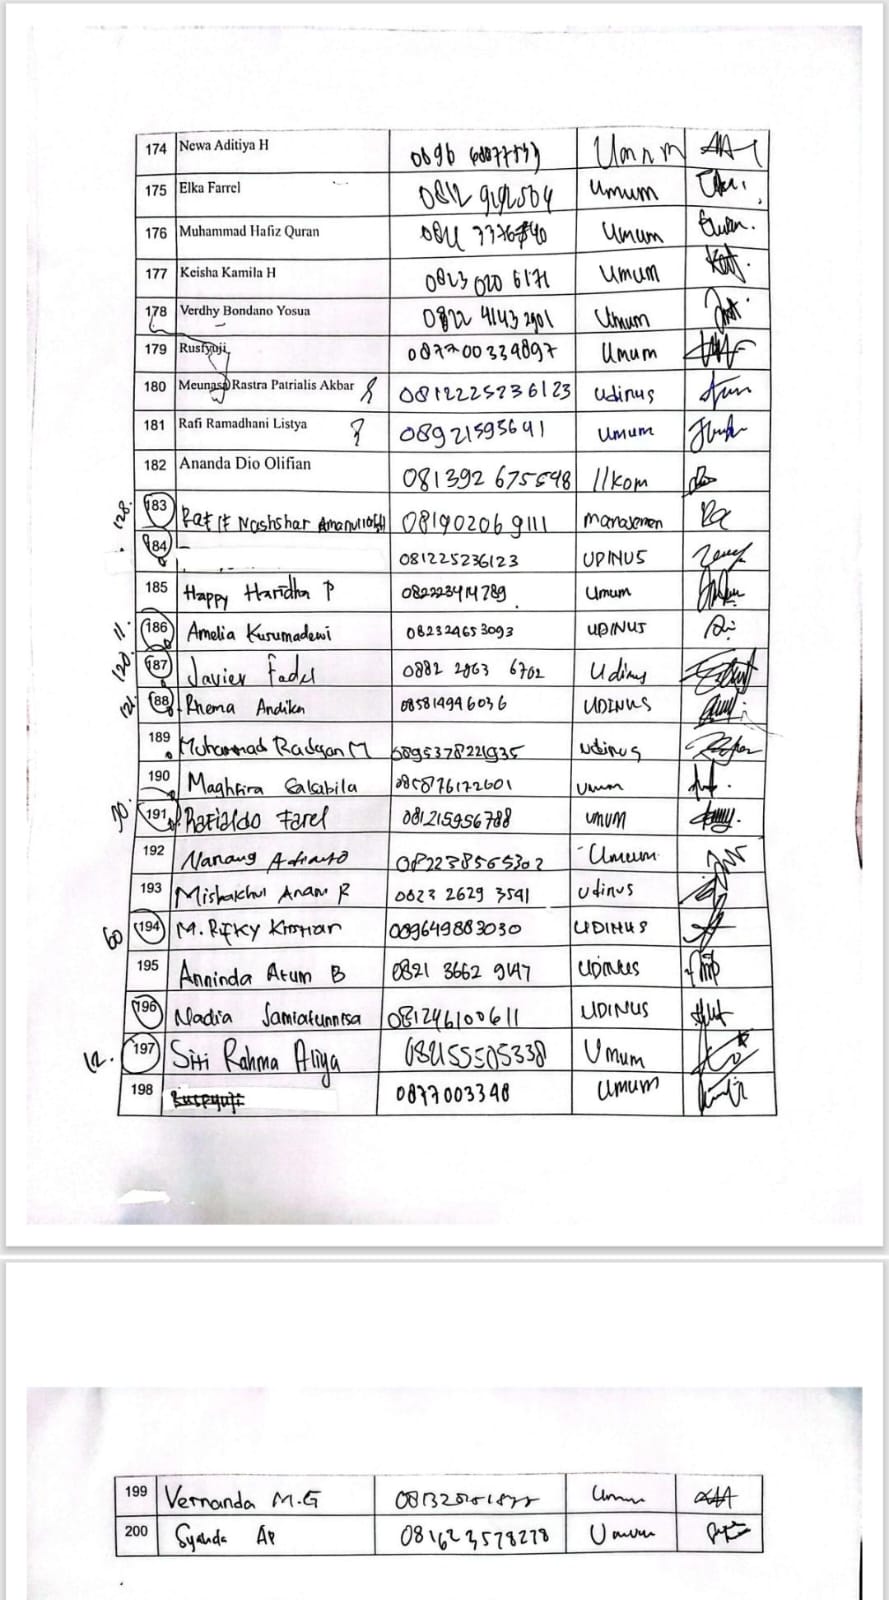 174 Newa Aditiya H Umum
175 Elka Farrel Umum
176 Muhammad Hafiz Quran Umum
177 Keisha Kamila H 0823 020 6171 Umum
178 Verdhy Bondano Yosua 0822 4143 2901 Umum
179 Rusfyuji 087700339897 Umum
180 Meunasa Rastra Patrialis Akbar 0812225236123 Udinus
181 Rafi Ramadhani Listya 08921595691 Umum
182 Ananda Dio Olifian 081392 675598 Ilkom
128. 183 Nashshar Amanullah 081902069111 manajemen
184 081225236123 UDINUS
185 Happy Haridha P 082223414789 Umum
11. 186 Amelia Kusumadewi 082324653093 UDINUS
120. 187 Javier Fadel 0882 2963 6702 Udinus
121. 188 Rhema Andika 085814946036 UDINUS
189 Muhammad Radyan M 0895378221935 Udinus
190 Maghfira Salsabila 085876172601 Umum
191 Rafialdo Farel 081215956788 UMUM
192 Nanang 082238565302 Umum
193 Misbakhul Anam R 0823 2629 3591 Udinus
60 194 M. Rifky 089649883030 UDINUS
195 Anninda Arum B 0821 3662 9147 Udinus
196 Nadia Samiatunnisa 081246100611 UDINUS
12. 197 Siti Rahma Aliya Umum
198 0877003348 Umum
199 Vernanda M.G Umum
200 Syanda AP 081623578278 Umum